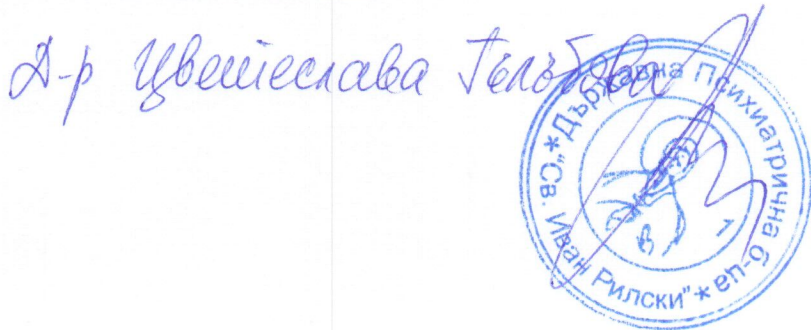 Д-р Цветеслава Гълъбова
Държавна Психиатрична б-ца * "Св. Иван Рилски" *
1